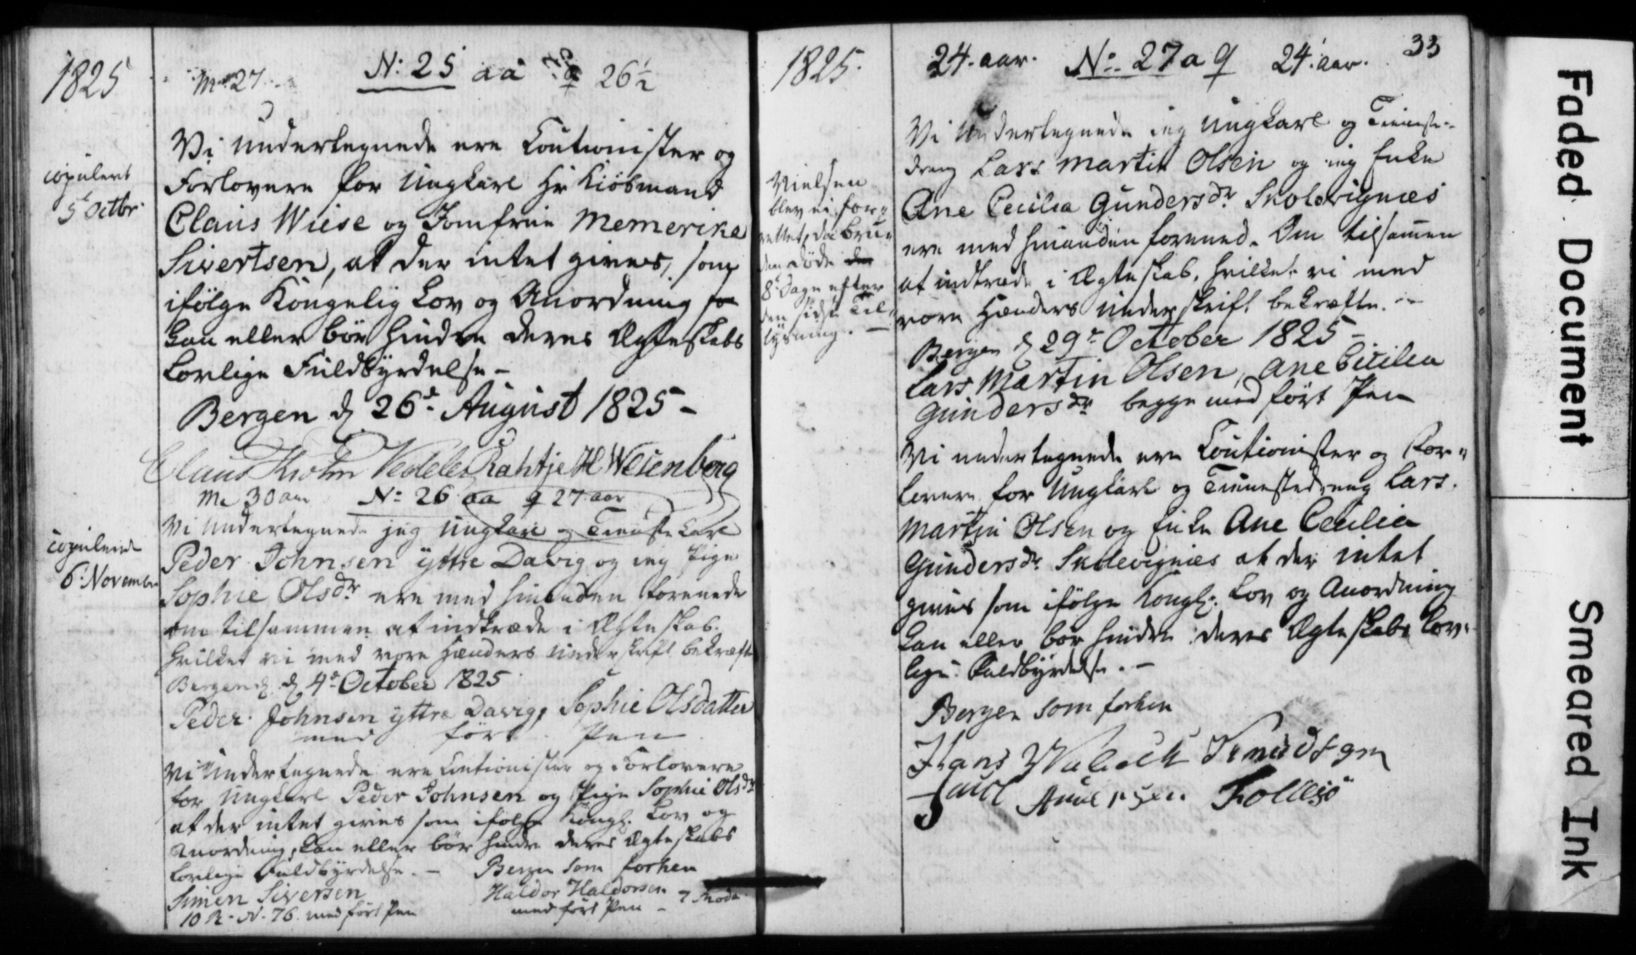 1825
M 27. N: 25 aa 26½
copuleret
5 Octbr.
Vi Undertegnede ere Coutionister og
Forlovere for Ungkarl Hr Kiöbmand
Claus Wiese og Jomfrue Memerike
Sivertsen, at der intet gives, som
ifölge Kongelig Lov og Anordning
kan eller bör hindre deres Ægteskabs
Lovlige Fuldbyrdelse –
Bergen d. 26d. August 1825 –
Claus Krohn Vedeler Rahtje H Welenberg
M 30 aar N: 26 aa 27 aar
copulerede
6. November
Vi Undertegnede jeg Ungkarl og Tieneste Karl
Peder Johnsen yttre Davig og jeg Pige
Sophie Olsdr ere med hinanden forenede
om tilsammen at indtræde i Ægteskab.
hvilket vi med vore Hænders Underskrift bekræfte
Bergen d. 4d October 1825
Peder Johnsen yttre Davig, Sophie Olsdatter
med fört Pen
Vi Undertegnede ere Cautionister og Forlovere
for Ungkarl Peder Johnsen og Pige Sophie Olsdr
at der intet gives som ifölge Kongl. Lov og
Anordning, kan eller bör hindre deres Ægteskabs
Lovlige Fuldbyrdelse. – Bergen som forhen
Simen Siversen Haldor Haldorsen
10 R. N. 76. med fört Pen med fört Pen – 7 Rode
1825.
24. aar. No. 27 a 24. aar. 33
Nielsen
blev ei for=
rettet, da Bru=
den döde
8. Dage efter
den sidste Til
lysning. –
Vi Undertegnede jeg Ungkarl og Tieneste
dreng Lars Martin Olsen og jeg Enke
Ane Cecilia Gundersdr Skolevignæs
ere med hinanden forened. Om tilsammen
at indtræde i Ægteskab, hvilket vi med
vore Hænders Underskrift bekræfte. –
Bergen d 29d October 1825 –
Lars Martin Olsen, Ane Cicilea
Gundersdr begge med fört Pen
Vi undertegnede ere Coutionister og For=
lovere for Ungkarl og Tienestedreng Lars.
Martin Olsen og Enke Ane Cecilia
Gundersdr Skolevignies at der intet
gives som ifölge Kongl. Lov og Anordning
kan eller bör hindre deres Ægteskabs Lov=
lige Fuldbyrdelse. –
Bergen som forhen
Hans Knudsen
Follesö
Faded Document
Smeared Ink